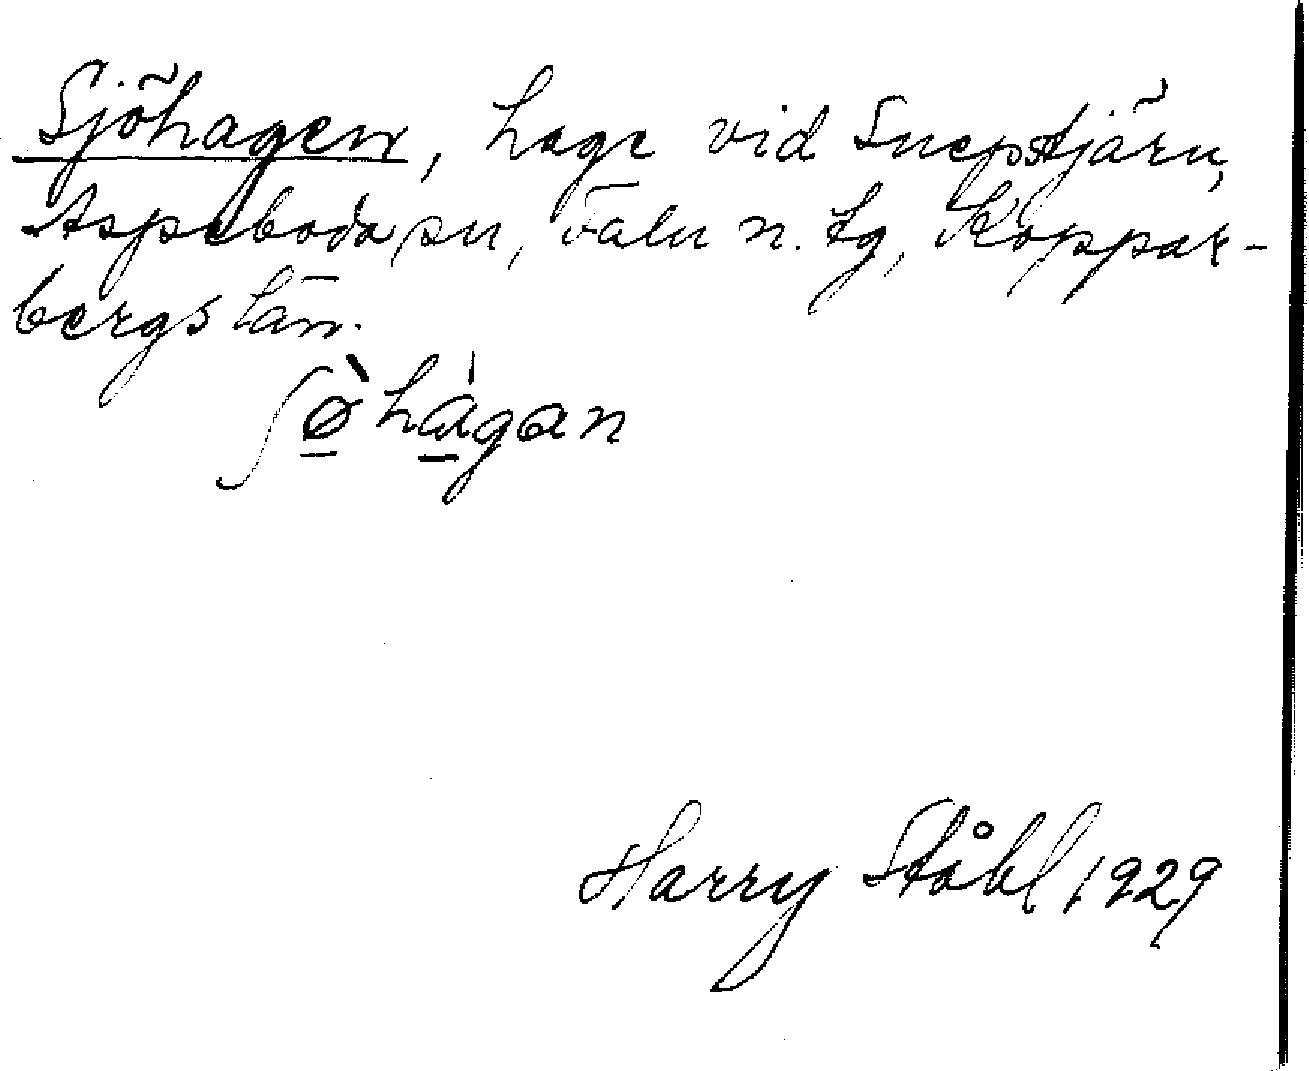 Sjöhagen, hage vid Snepstjärn,
Aspeboda sn, Falu n. tg, Koppar-
bergs län.
ʃø̀hàgan
Harry Ståhl 1929